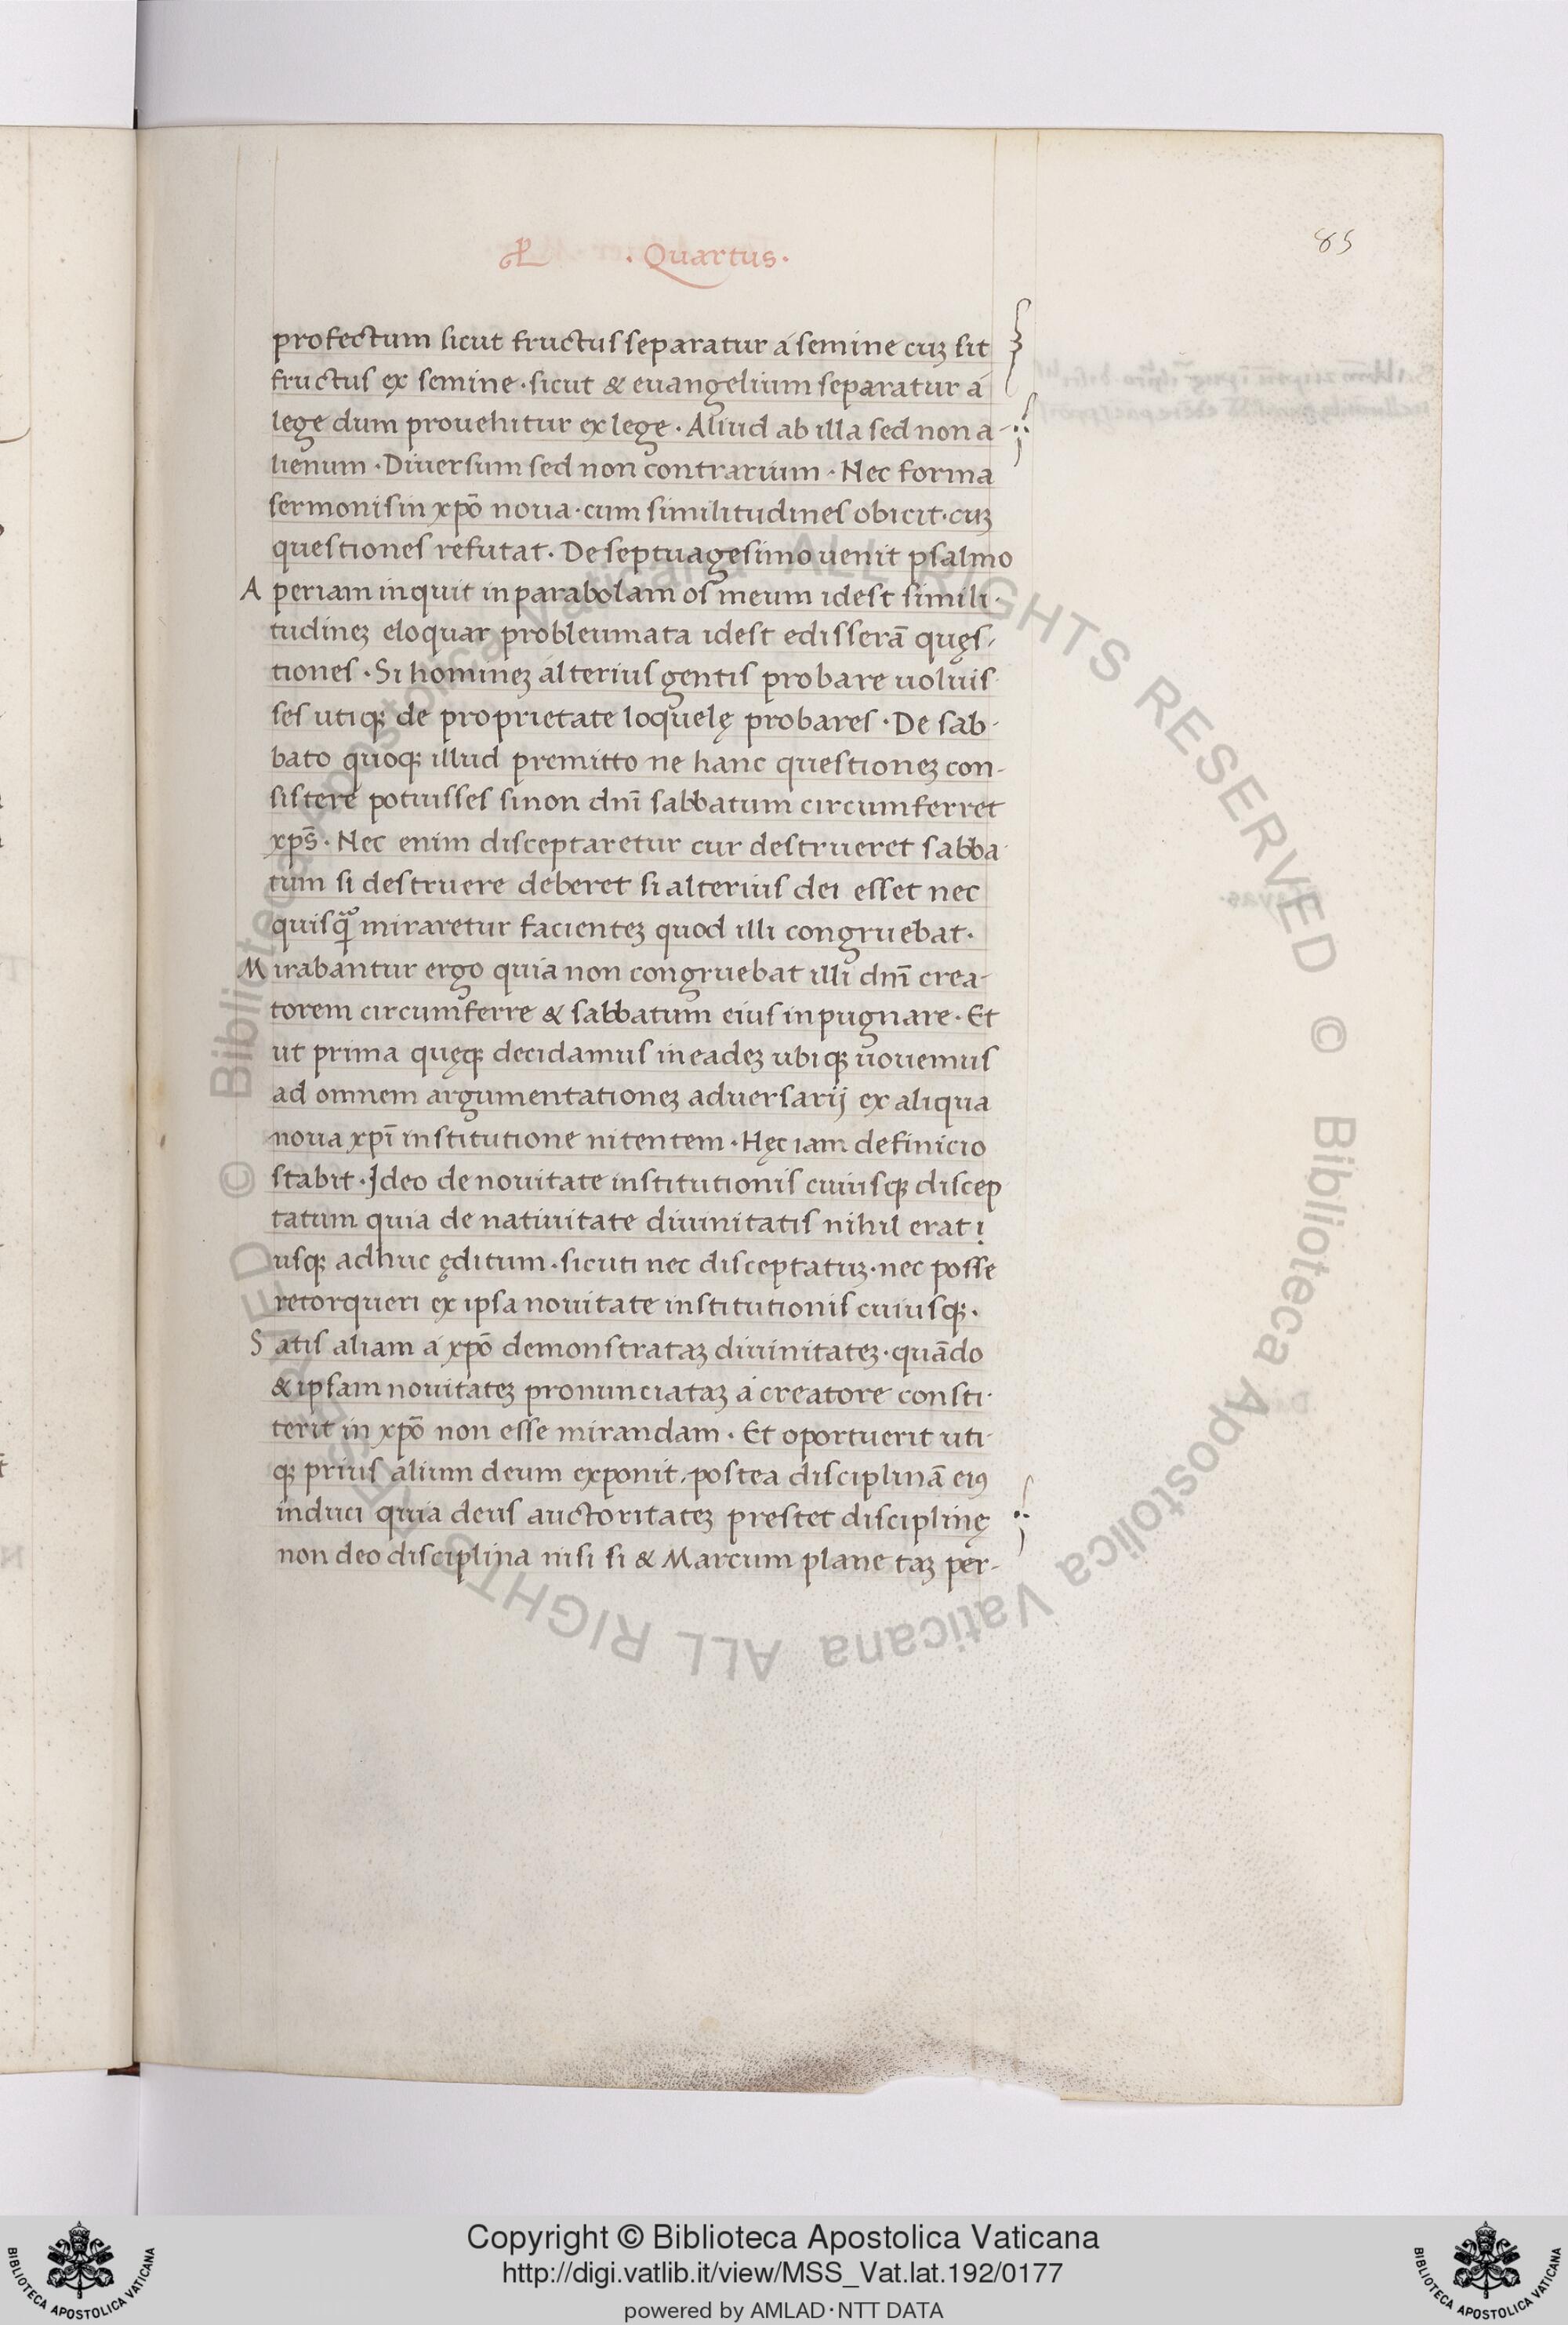 ·Quartus·
85
profectum sicut fructus separatur á semine cuꝫ sit
fructus ex semine·sicut & euangelium separatur á
lege dum prouehitur ex lege·Aliud ab illa sed non a-
lienum·Diuersum sed non contrarium·Nec forma
sermonis in xpō noua·cum similitudines obicit·cuꝫ
questiones refutat·De septuagesimo uenit psalmo
Aperiam inquit in parabolam os meum idest simili-
tudineꝫ eloquar probleumata idest edisserā quęs-
tiones·Si homineꝫ alterius gentis probare uoluis-
ses utiqꝫ de proprietate loquelę probares·De sab-
bato quoqꝫ illud premitto ne hanc questioneꝫ con-
sistere potuisses sinon dnī sabbatum circumferret
xps̄·Nec enim disceptaretur cur destrueret sabba-
tum si destruere deberet si alterius dei esset nec
quisqᷓ miraretur facienteꝫ quod illi congruebat·
Mirabantur ergo quia non congruebat illi dnī crea-
torem circumferre & sabbatum eius inpugnare·Et
ut prima quęqꝫ decidamus in eadeꝫ ubiqꝫ uouemus
ad omnem argumentationeꝫ aduersarij ex aliqua
noua xpī institutione nitentem·Hęc iam definicio
stabit·Ideo de nouitate institutionis cuiusqꝫ discep
tatum quia de natiuitate diuinitatis nihil erat i
usqꝫ adhuc ęditum·sicuti nec disceptatuꝫ·nec posse
retorqueri ex ipsa nouitate institutionis cuiusqꝫ·
Satis aliam á xpō demonstrataꝫ diuinitateꝫ·quādo
& ipsam nouitateꝫ pronunciataꝫ á creatore consti-
terit in xpō non esse mirandam·Et oportuerit uti-
qꝫ prius alium deum exponit, postea disciplinā eiꝰ
induci quia deus auctoritateꝫ prestet disciplinę
non deo disciplina nisi si & Marcum plane taꝫ per-
Copyright © Biblioteca Apostolica Vaticana
http://digi.vatlib.it/view/MSS_Vat.lat.192/0177
powered by AMLAD·NTT DATA
BIBLIOTECA APOSTOLICA VATICANA
BIBLIOTECA APOSTOLICA VATICANA
© Biblioteca Apostolica Vaticana ALL RIGHTS RESERVED
© Biblioteca Apostolica Vaticana ALL RIGHTS RESERVED